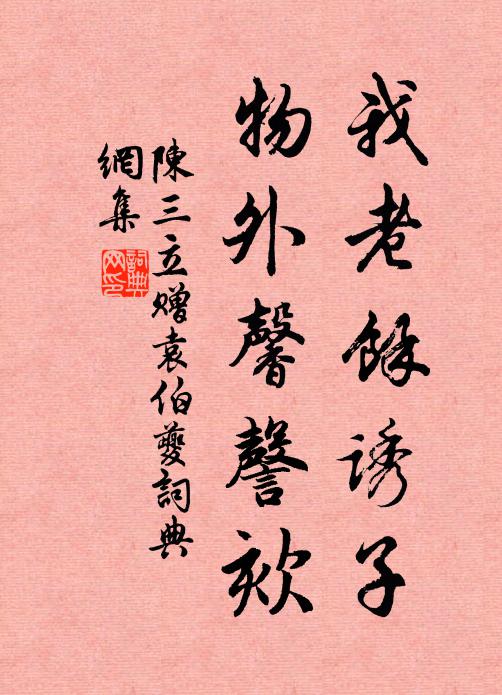 我老餘誘子
物外馨謦欬
陳三立贈袁伯夔詞典
網集
詞典網印